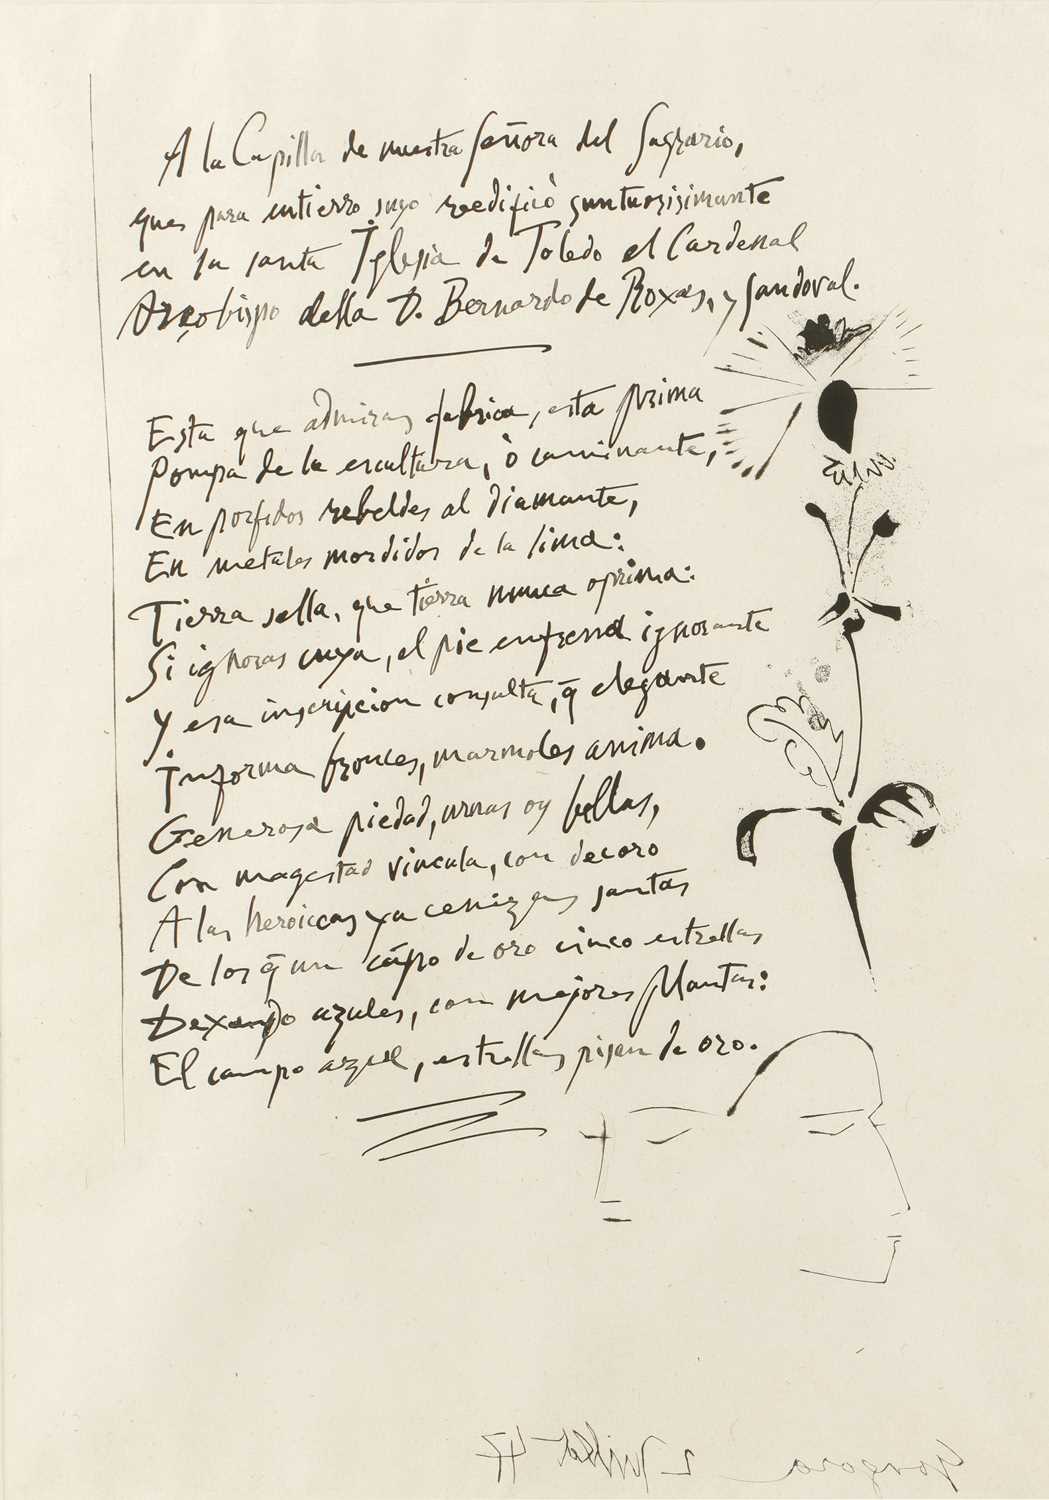 A la Capilla de nuestra Señora del Sagrario,
que para entierro suyo reedificò suntuosisimante
en la santa Iglesia de Toledo el Cardenal
Arçobispo della D. Bernardo de Roxas, y Sandoval.
Esta que admiras fabrica, esta prima
Pompa de la escultura, ò caminante,
En porfidos rebeldes al diamante,
En metales mordidos de la lima:
Tierra sella, que tierra nunca oprima:
Si ignoras cuya, el pie enfrena ignorante
Y esa inscripcion consulta, q̃ elegante
Informa bronces, marmoles anima.
Generosa piedad, urnas oy bellas,
Con magestad vincula, con decoro
A las heroiccas ya cenizas santas
De los q̃ un cãpo de oro cinco estrellas
Dexando azules, con mejores Plantas:
El campo azul, estrellas pisen de oro.
Gongora 2 Juillet 47